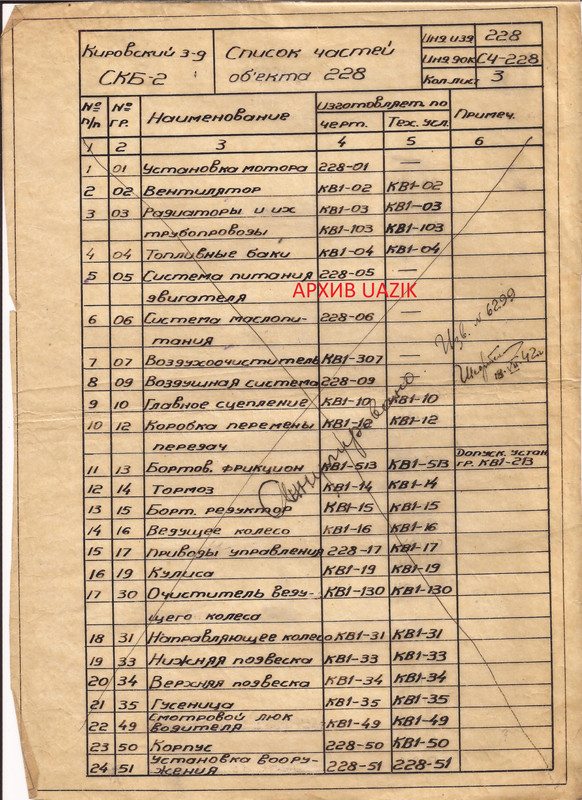 Кировский з-д
СКБ-2
Список частей
объекта 228
Инд изд 228
Инд док СЧ-228
Кол. лист 3
№ п/п № гр. Наименование Изготовляет по Примеч.
черт. Тех. усл.
1 2 3 4 5 6
1 01 Установка мотора 228-01 —
2 02 Вентилятор КВ1-02 КВ1-02
3 03 Радиаторы и их КВ1-03 КВ1-03
трубопроводы КВ1-103 КВ1-103
4 04 Топливные баки КВ1-04 КВ1-04
5 05 Система питания 228-05 —
двигателя
АРХИВ UAZIK
6 06 Система маслопи- 228-06 —
тания
Изв. № 6299
7 07 Воздухоочиститель КВ1-307 —
18-VII-42г
8 09 Воздушная система 228-09 —
9 10 Главное сцепление КВ1-10 КВ1-10
10 12 Коробка перемены КВ1-12 КВ1-12
передач
Аннулировано
11 13 Бортов. фрикцион КВ1-513 КВ1-513 Допуск. устан
гр. КВ1-213
12 14 Тормоз КВ1-14 КВ1-14
13 15 Борт. редуктор КВ1-15 КВ1-15
14 16 Ведущее колесо КВ1-16 КВ1-16
15 17 Приводы управления 228-17 КВ1-17
16 19 Кулиса КВ1-19 КВ1-19
17 30 Очиститель веду- КВ1-130 КВ1-130
щего колеса
18 31 Направляющее колесо КВ1-31 КВ1-31
19 33 Нижняя подвеска КВ1-33 КВ1-33
20 34 Верхняя подвеска КВ1-34 КВ1-34
21 35 Гусеница КВ1-35 КВ1-35
22 49 Смотровой люк КВ1-49 КВ1-49
водителя
23 50 Корпус 228-50 КВ1-50
24 51 Установка воору- 228-51 228-51
жения